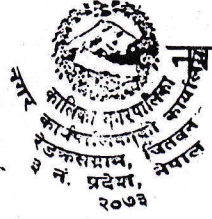 न
कालिका नगरपालिका
नगर कार्यपालिकाको कार्यालय
रेडक्रसग्राम, चितवन
३ नं. प्रदेश, नेपाल
२०७३